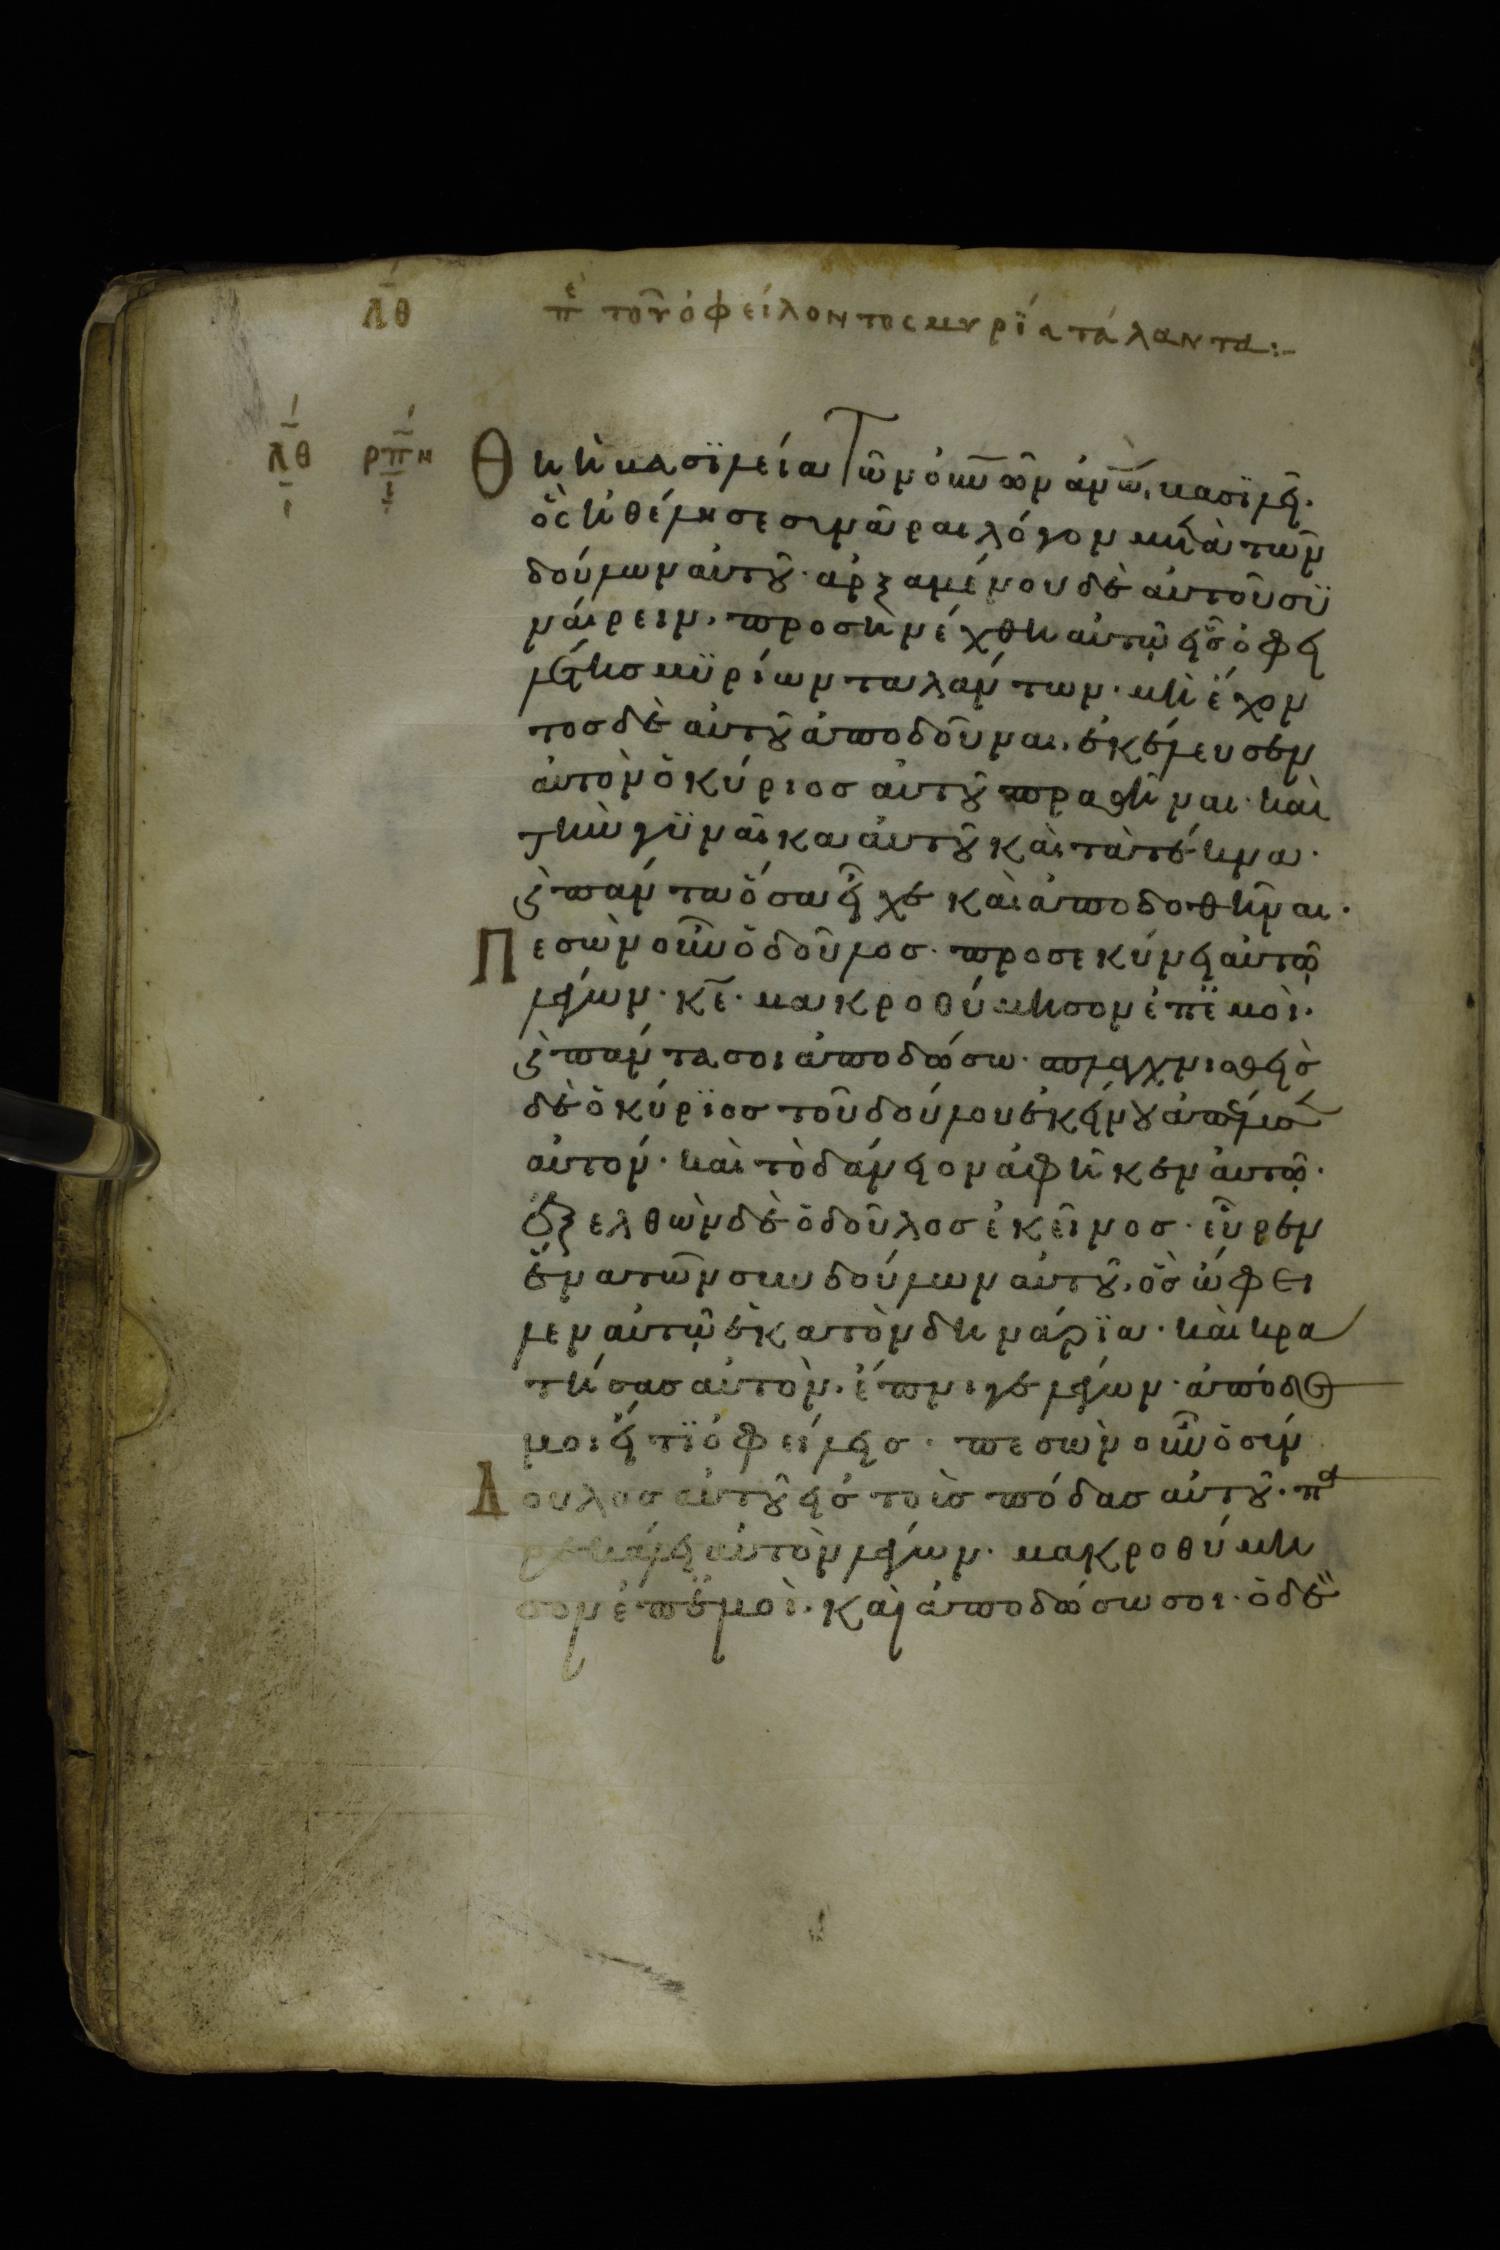 λθ πε τοῦ ὀφείλοντος μυρϊα τάλαντα:-
λθ ρπη θη ἡ βασϊλεία τῶν οὐνῶν ἀνω, βασϊλεῖ·
ὃς ἠθέλησε συνᾶραι λόγον μετὰ τῶν
δούλων αὐτοῦ· ἀρξαμένου δὲ αὐτοῦ συ
ναίρειν· προσηνέχθη αὐτῷ εἷς ὀφει
λέτης μυρίων ταλάντων· μὴ ἔχον
τος δὲ αὐτοῦ ἀποδοῦναι, ἐκέλευσεν
αὐτὸν ὁ κύριος αὐτοῦ πραθῆναι· καὶ
τὴν γυναῖκα αὐτοῦ καὶ τὰ τέκνα·
καὶ πάντα ὅσα εἶχε καὶ ἀποδοθῆναι·
Πεσὼν οὖν ὁ δοῦλος· προσεκύνει αὐτῷ
λέγων· κε· μακροθύμησον ἐπ' ἐμοὶ·
καὶ πάντα σοι ἀποδώσω· σπλαχνισθεὶς
δὲ ὁ κύριος τοῦ δούλου ἐκείνου ἀπέλυσεν
αὐτόν· καὶ τὸ δάνειον ἀφῆκεν αὐτῷ·
ἐξελθὼν δὲ ὁ δοῦλος ἐκεῖνος· εὗρεν
ἕνα τῶν συνδούλων αὐτοῦ, ὃς ὤφει
λεν αὐτῷ ἑκατὸν δηνάρϊα· καὶ κρα
τήσας αὐτὸν· ἔπνιγε λέγων· ἀπόδος
μοι εἴ τϊ ὀφείλεις· πεσὼν οὖν ὁ σύν
Δουλος αὐτοῦ εἰς τοὺς πόδας αὐτοῦ· πα
ρεκάλει αὐτὸν λέγων· μακροθύμη
σον ἐπ' ἐμοὶ· καὶ ἀποδώσω σοι· ὁ δὲ